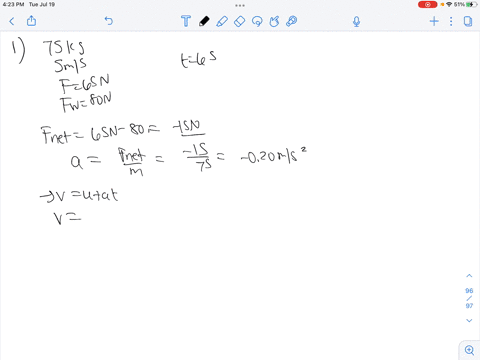 4:23 PM Tue Jul 19
51%
1) 75kg
5m/s
t=6s
F=65N
Fw=80N
Fnet = 65N-80 = -15N
a = Fnet/m = -15/75 = -0.20m/s²
→ v = u+at
v =
96
97